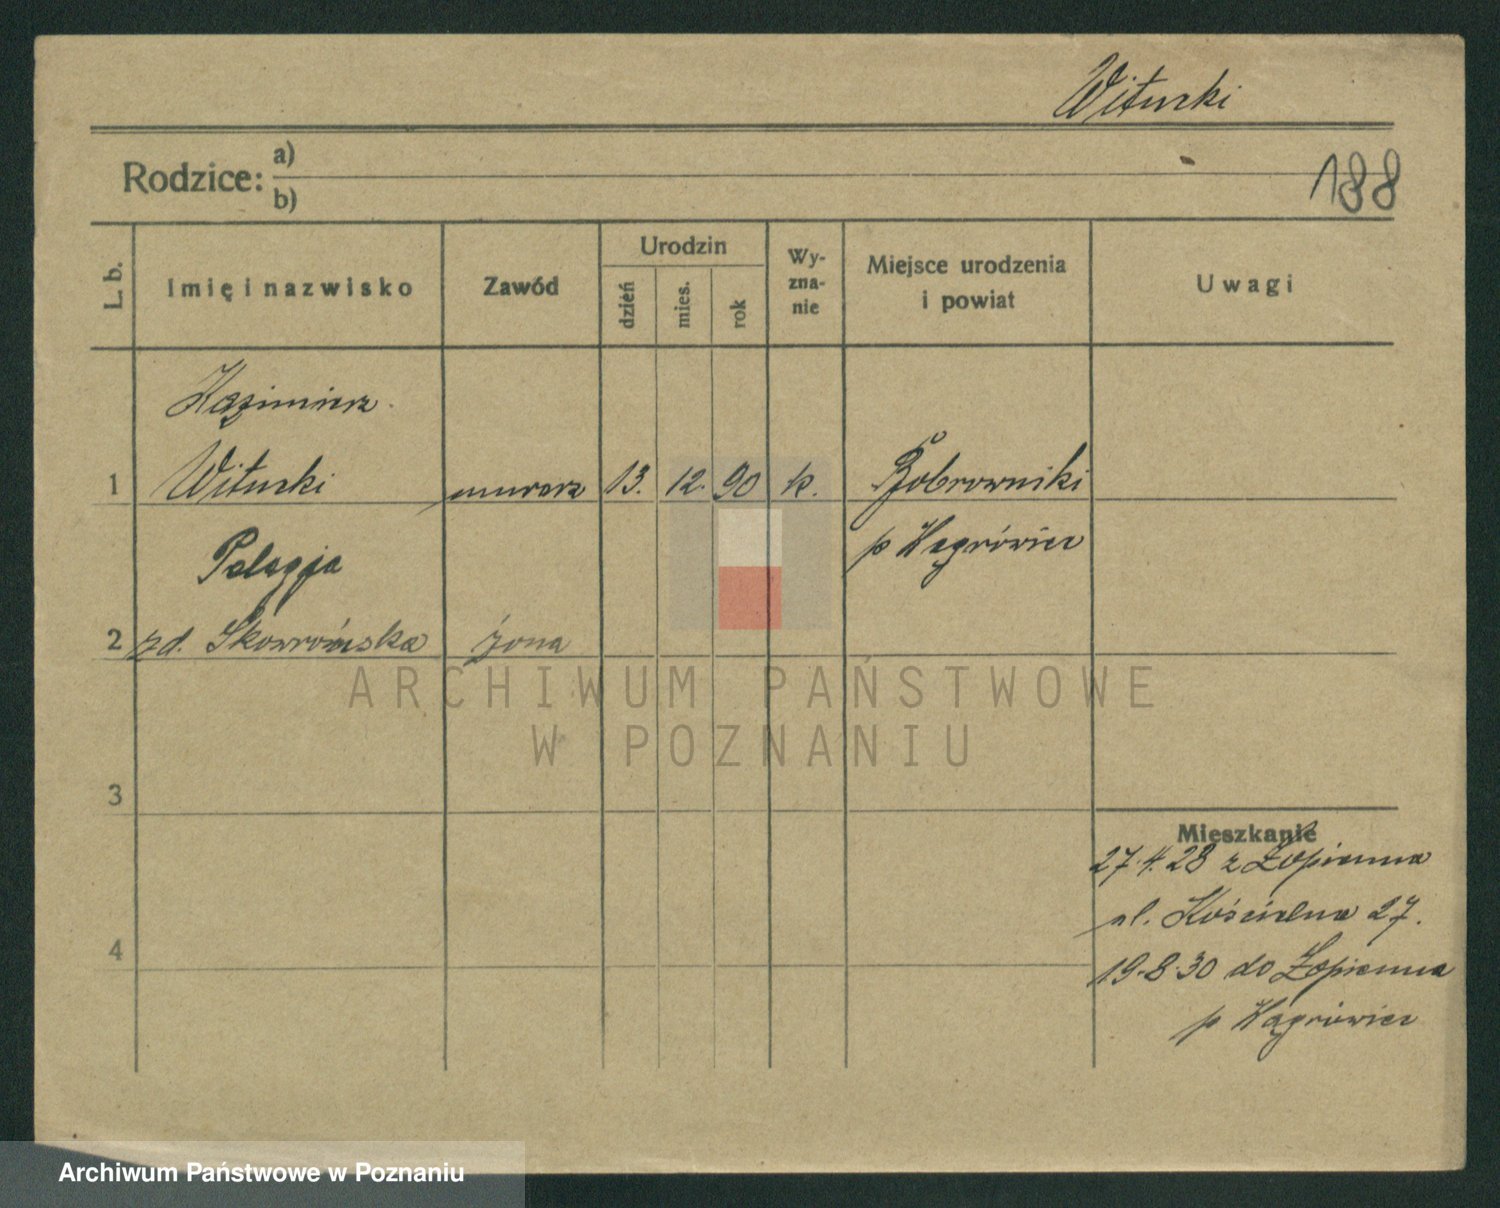 Witurki
Rodzice: a)
b)
188
L. b.
Imię i nazwisko
Zawód
Urodzin
dzień
mies.
rok
Wy-
zna-
nie
Miejsce urodzenia
i powiat
Uwagi
Kazimierz
1 Witurki murarz 13. 12. 90 k. Bobrowniki
p Wągrówiec
Pelagja
2 zd. Skowrońska żona
ARCHIWUM PAŃSTWOWE
W POZNANIU
3
Mieszkanie
27.4.28 z Łopienna
ul. Kościelna 27.
4
19.8.30 do Łopienna
p Wągrówiec
Archiwum Państwowe w Poznaniu